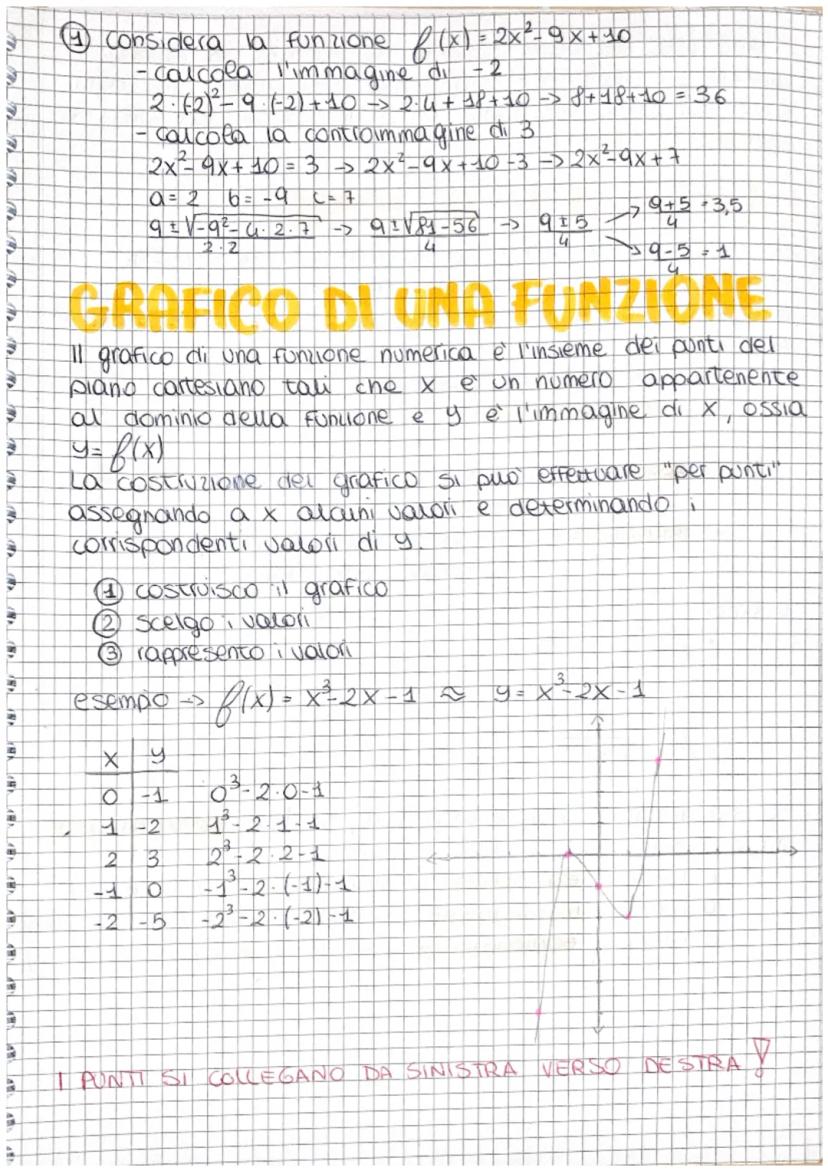 ① considera la funzione f(x) = 2x²-9x+10
- calcola l'immagine di -2
2·(-2)²-9·(-2)+10 -> 2·4+18+10 -> 8+18+10 = 36
- calcola la controimmagine di 3
2x²-9x+10=3 -> 2x²-9x+10-3 -> 2x²-9x+7
a=2 b=-9 c=7
9±√-9²-4·2·7 / 2·2 -> 9±√81-56 / 4 -> 9±5 / 4 -> 9+5 / 4 = 3,5
-> 9-5 / 4 = 1
GRAFICO DI UNA FUNZIONE
Il grafico di una funzione numerica è l'insieme dei punti del
piano cartesiano tali che x è un numero appartenente
al dominio della funzione e y è l'immagine di x, ossia
y=f(x)
La costruzione del grafico si può effettuare "per punti"
assegnando a x alcuni valori e determinando i
corrispondenti valori di y.
① costruisco il grafico
② scelgo i valori
③ rappresento i valori
esempio -> f(x) = x³-2x-1 ≈ y= x³-2x-1
x | y
0 | -1 0³-2·0-1
1 | -2 1³-2·1-1
2 | 3 2³-2·2-1
-1 | 0 -1³-2·(-1)-1
-2 | -5 -2³-2·(-2)-1
I PUNTI SI COLLEGANO DA SINISTRA VERSO DESTRA!